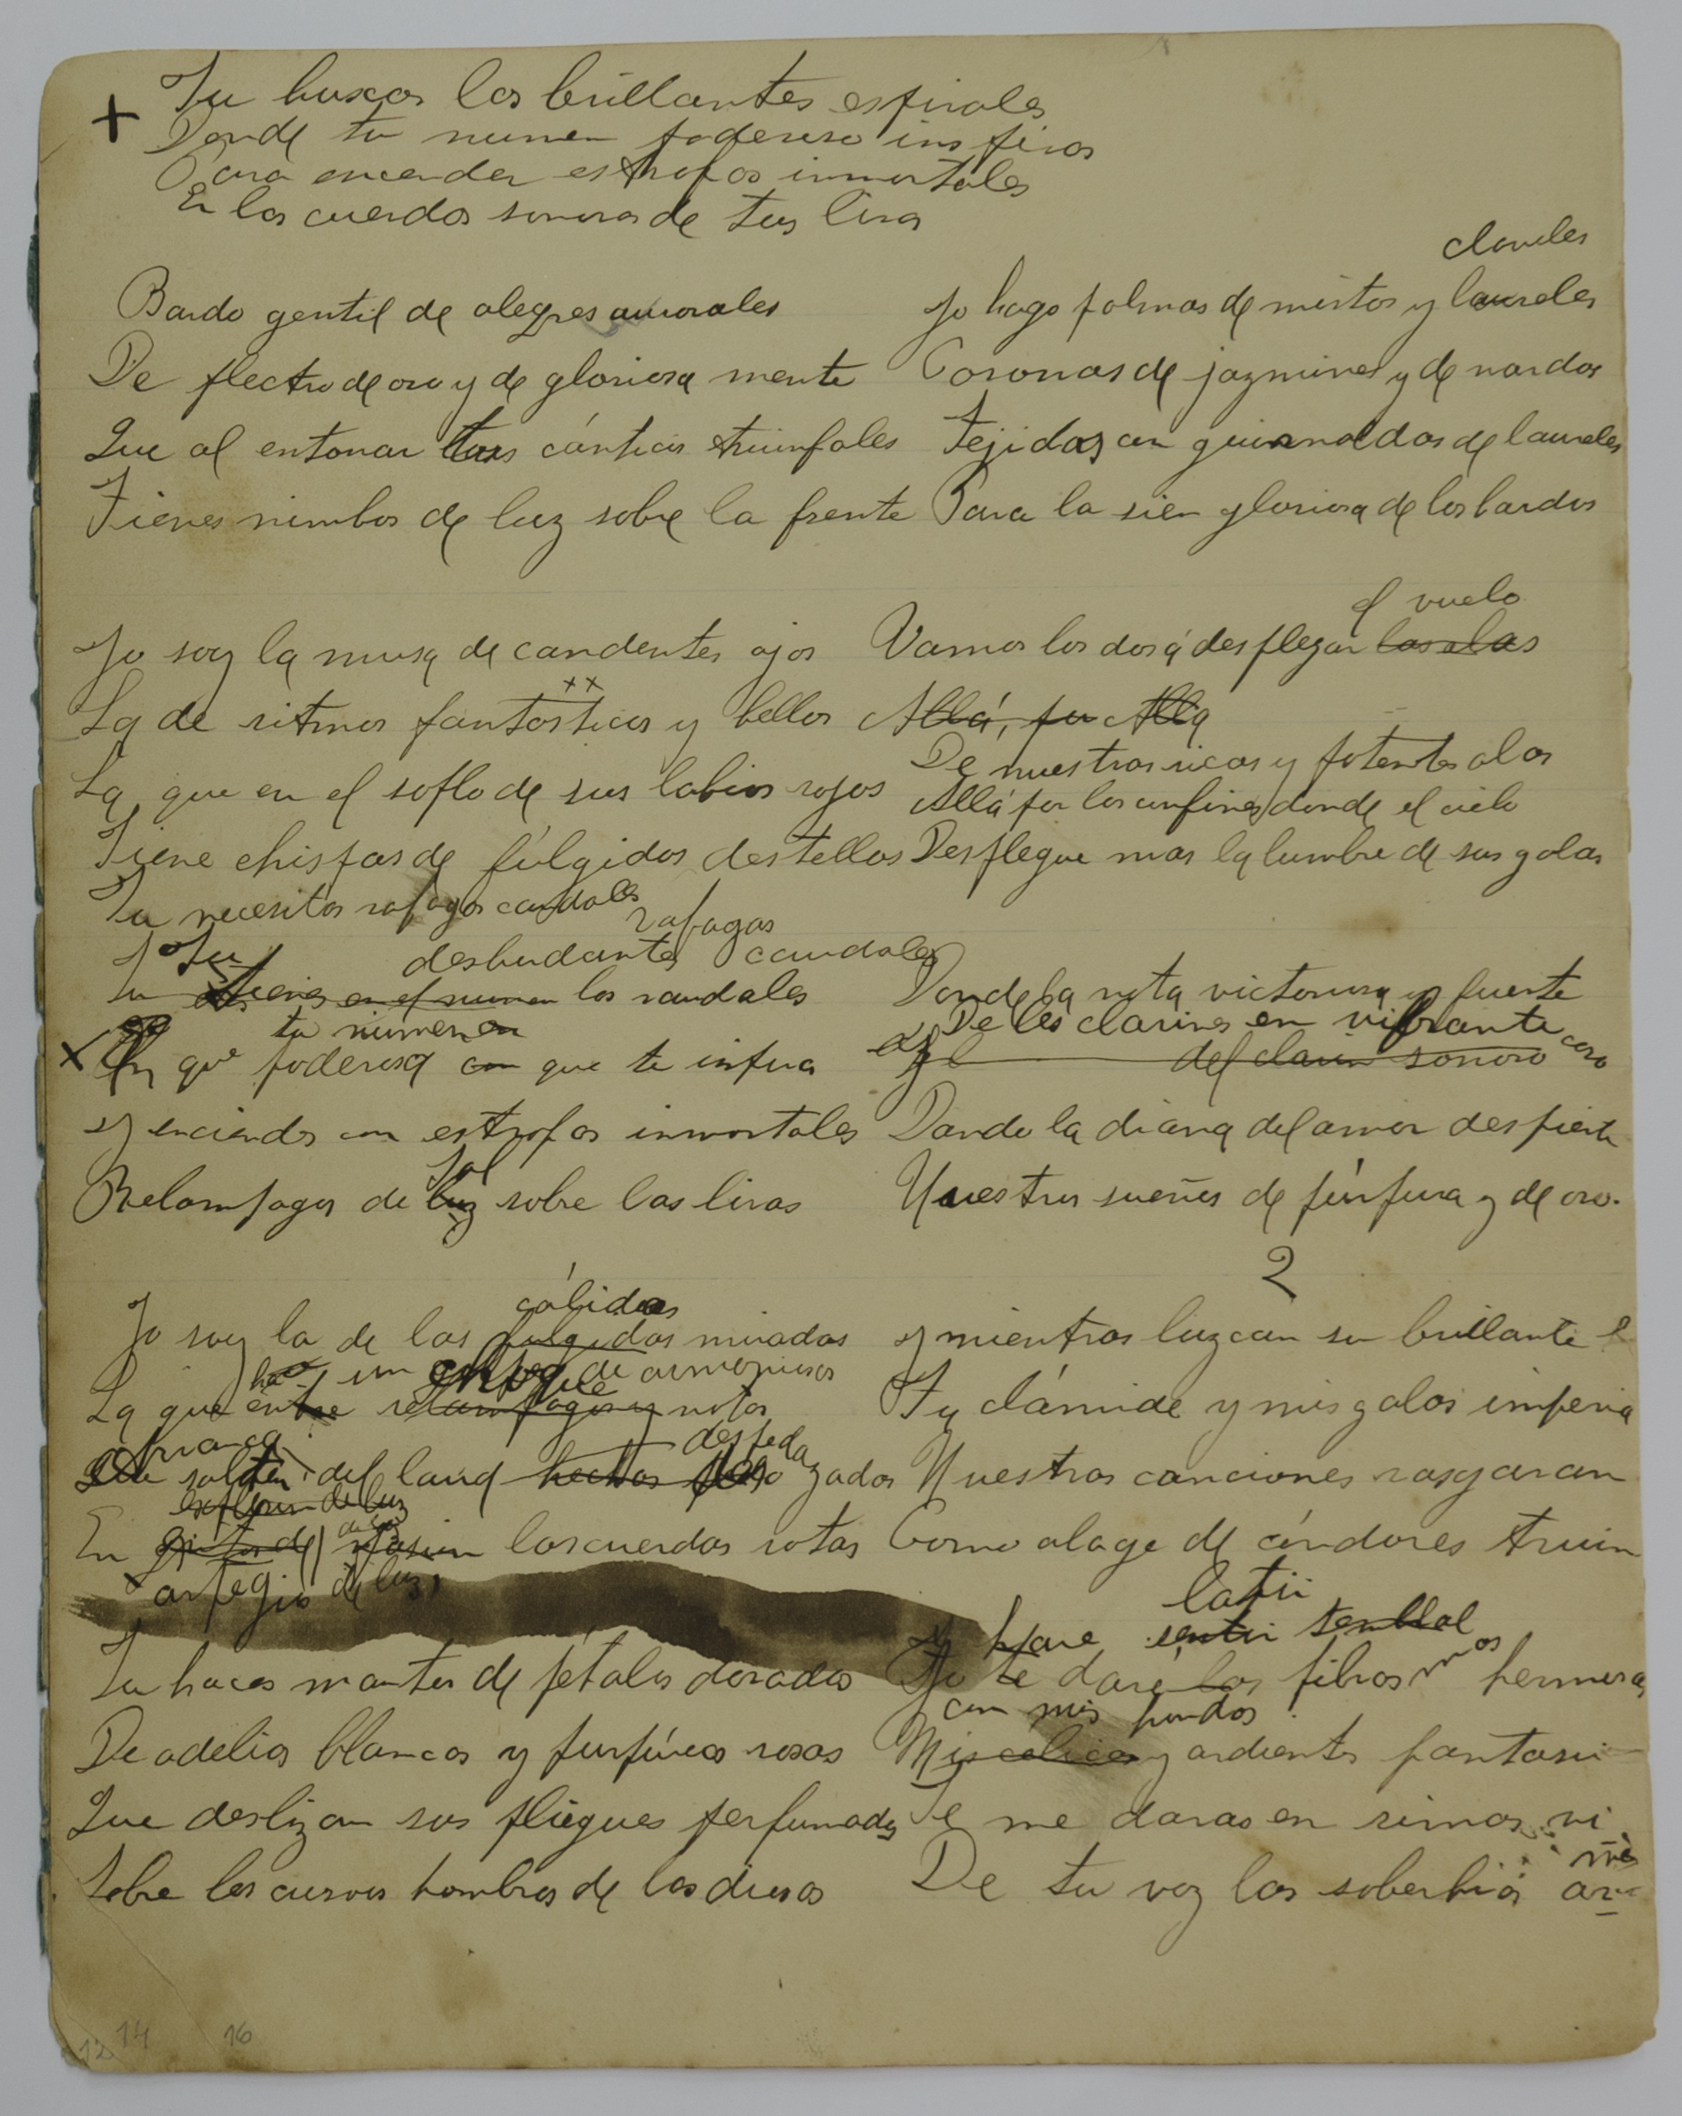 + Tu buscas las brillantes espirales
Donde tu numen poderoso inspiras
Para encender estrofas inmortales
En las cuerdas sonoras de tus liras
Bardo gentil de alegres aurorales
De plectro de oro y de gloriosa mente
Que al entonar tus cánticos triunfales
Tienes nimbos de luz sobre la frente
Yo soy la musa de candentes ojos
xx
La de ritmos fantásticos y bellos
La que en el soplo de sus labios rojos
Tiene chispas de fúlgidos destellos
Tu necesitas rafagas caudales
rafagas
Tu desbundantes caudales
Tu tienes en el numen los raudales
tu numen en
x En que poderosa con que te inspira
y enciendes con estrofas inmortales
Sol
Relampagos de luz sobre las liras
cálidas
Yo soy la de las fulgidas miradas
ha un choque de armonias
La que entre relampagos y notas
arranca despeda
salten del laud hechos zadas
explosion de luz
En gritos de pasion las cuerdas rotas
x arpegio de luz,
Tu haces mantos de pétalos dorados
De adelias blancas y purpúreas rosas
Que deslizan sus pliegues perfumados
Sobre los curvos hombros de las diosas
claveles
Yo hago palmas de mirtos y laureles
Coronas de jazmines y de nardos
Tejidas con guirnaldas de laureles
Para la sien gloriosa de los bardos
el vuelo
Vamos los dos á desplegar las alas
Allá, por Alla
De nuestras ricas y potentes alas
Allá por los confines donde el cielo
Desplegue mas la lumbre de sus galas
Donde la nota victoriosa y fuerte
De los clarines en vibrante coro
del clarin sonoro
Dando la diana del amor despierte
Nuestros sueños de púrpura y de oro.
2
y mientras luzcan su brillante
Tu clámide y mis galas imperia
Nuestras canciones rasgaran
Como alage de cóndores triun
latir
y hare sentir temblar
Yo te daré las fibras mas hermosas
con mis hondas
Mis calicas y ardientes fantasi
Te me daras en rimas
De tu voz las soberbias ar
12 14 16